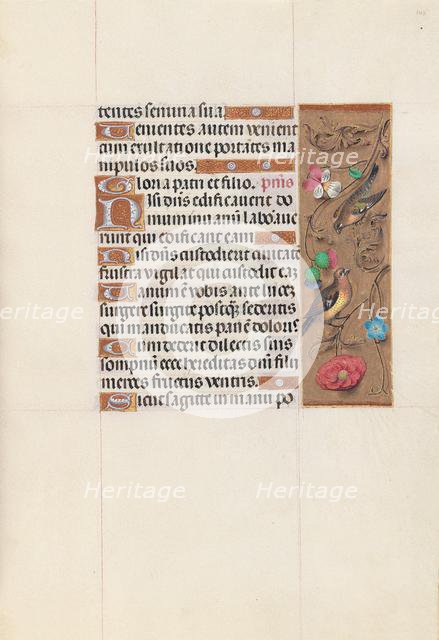 tentes semina sua
Uenientes autem venient
cum exultatione portātes ma
nipulos suos.
Gloria patri et filio. pn̄is
Nisi dn̄s edificauerit do
mum in uanū labo⁊aue
runt qui edificant eam
Nisi dn̄s custodierit ciuitatē
frustra vigilat qui custodit eā
Uanum ē vobis ante lucē
surgere surgite postq̄ȝ sederitis
qui manducatis panē doloris
Cum dederit dilectis suis
sompnū ecce hereditas dn̄i filii
merces fructus ventris.
Sicut sagitte in manu po
Heritage
Heritage
Heritage
Heritage
Heritage
Heritage